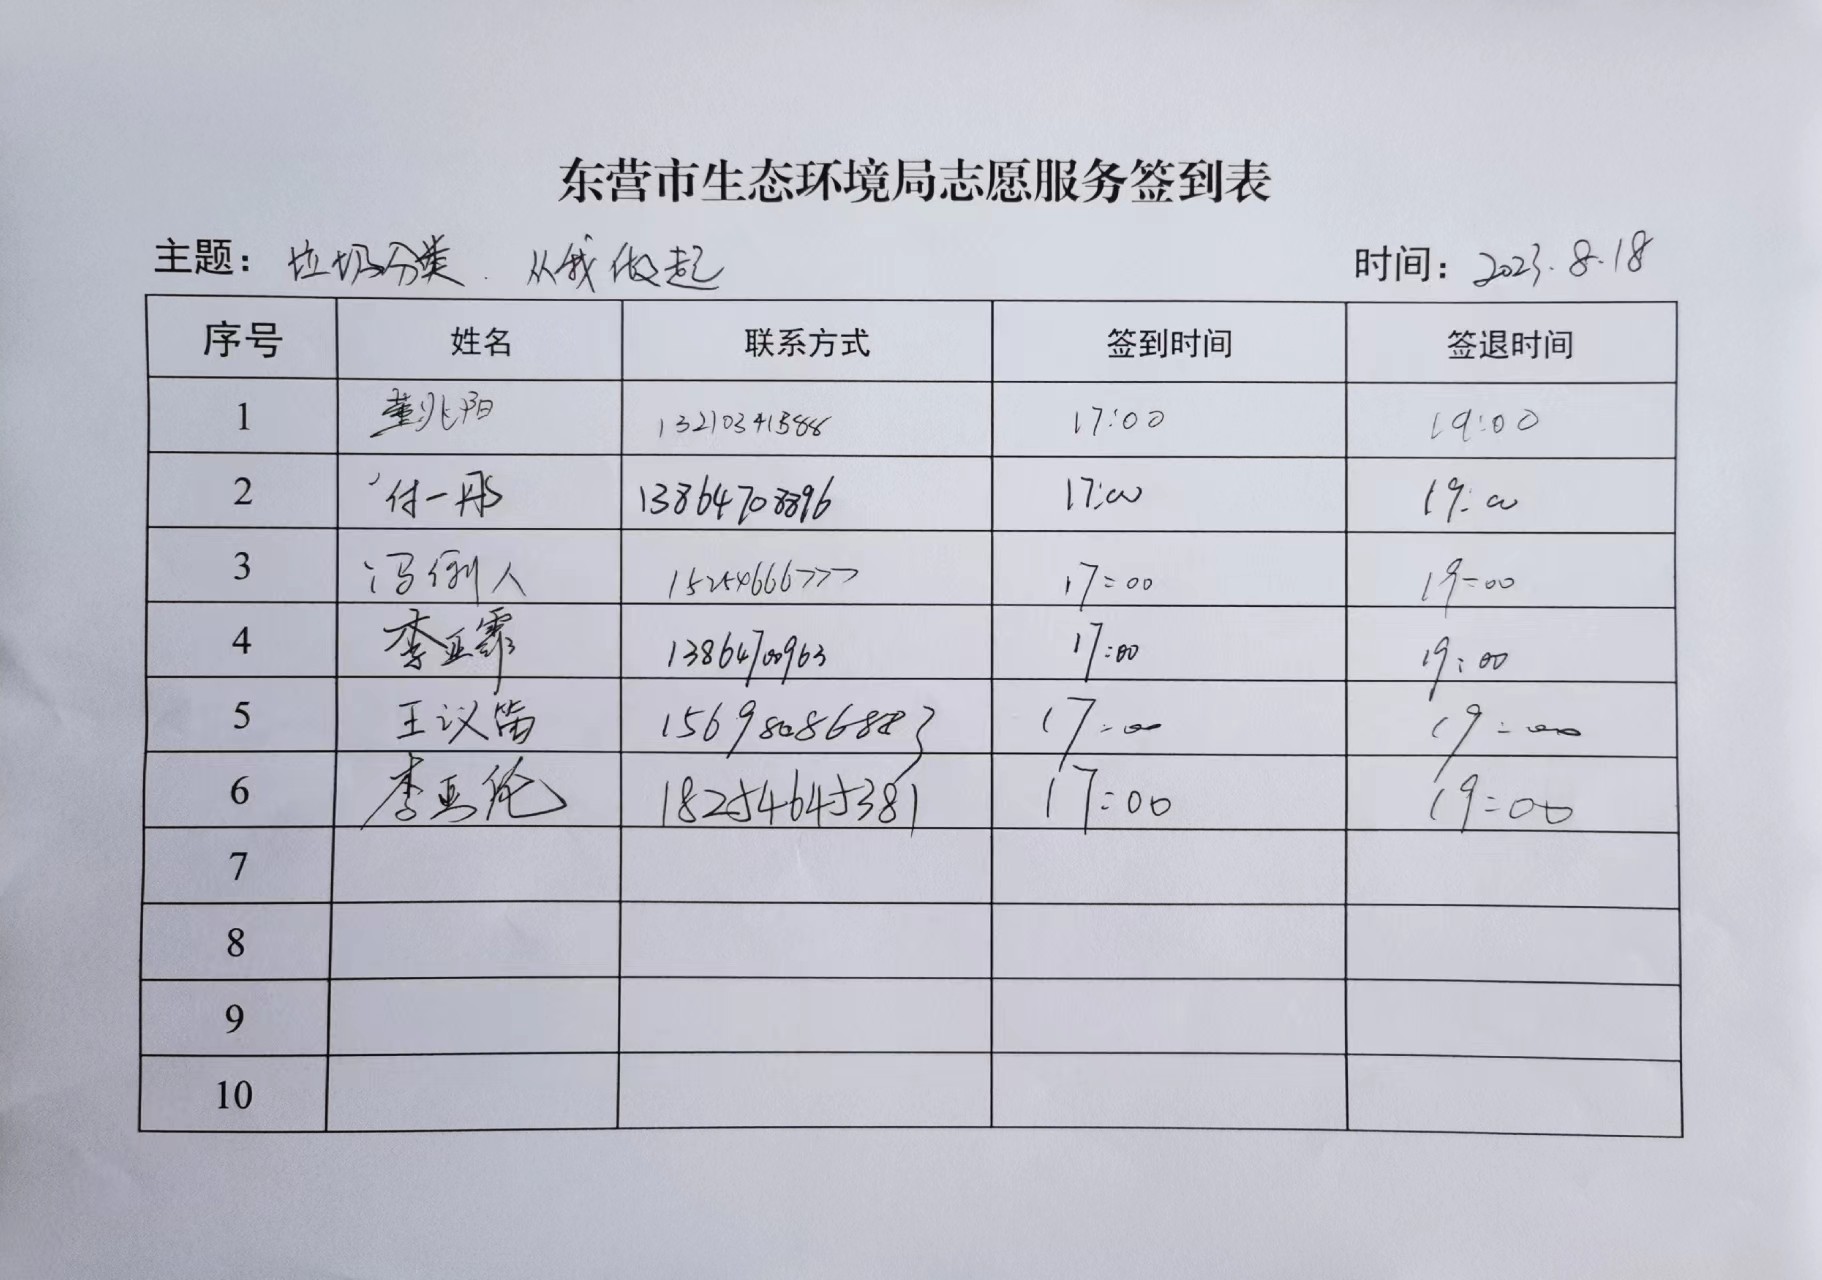 东营市生态环境局志愿服务签到表
主题：垃圾分类．从我做起 时间：2023.8.18
序号 姓名 联系方式 签到时间 签退时间
1 董兆阳 13210341588 17:00 19:00
2 付一彤 13864708896 17:00 19:00
3 冯俐人 15254666777 17:00 19:00
4 李亚霏 13864700963 17:00 19:00
5 王议笛 15698086883 17:00 19:00
6 李亚伦 18254645381 17:00 19:00
7
8
9
10